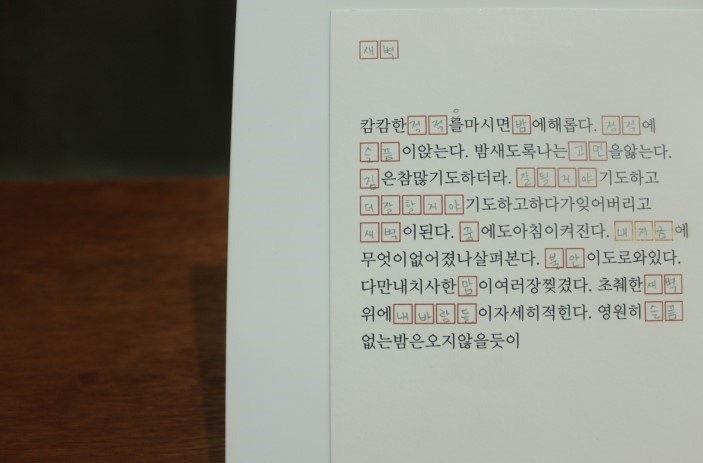 새벽
캄캄한정적를마시면밤에해롭다. 정적에
슬픔이앉는다. 밤새도록나는고민을앓는다.
짐은참많기도하더라. 잘될거야기도하고
더잘할거야기도하고하다가잊어버리고
새벽이된다. 꿈에도아침이켜진다. 내가슴에
무엇이없어졌나살펴본다. 불안이도로와있다.
다만내치사한맘이여러장찢겼다. 초췌한새벽
위에내바람들이자세히적힌다. 영원히슬픔
없는밤은오지않을듯이